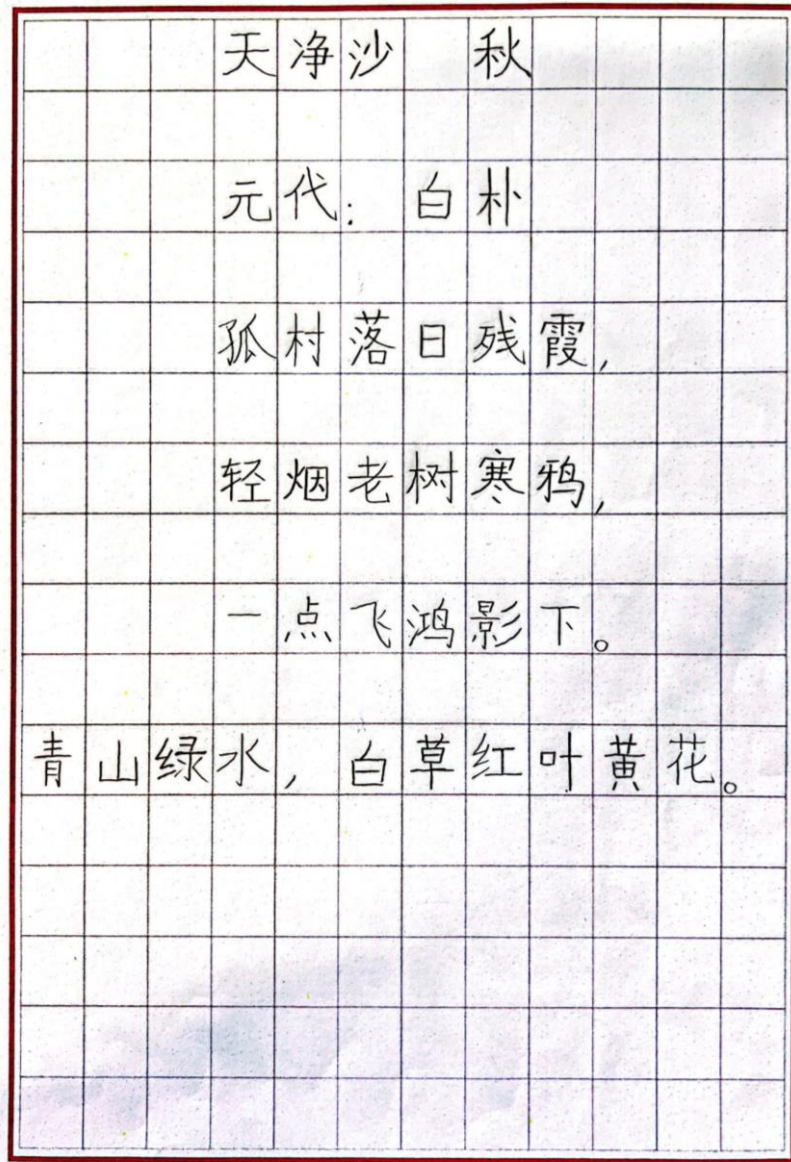 天净沙 秋
元代：白朴
孤村落日残霞，
轻烟老树寒鸦，
一点飞鸿影下。
青山绿水，白草红叶黄花。